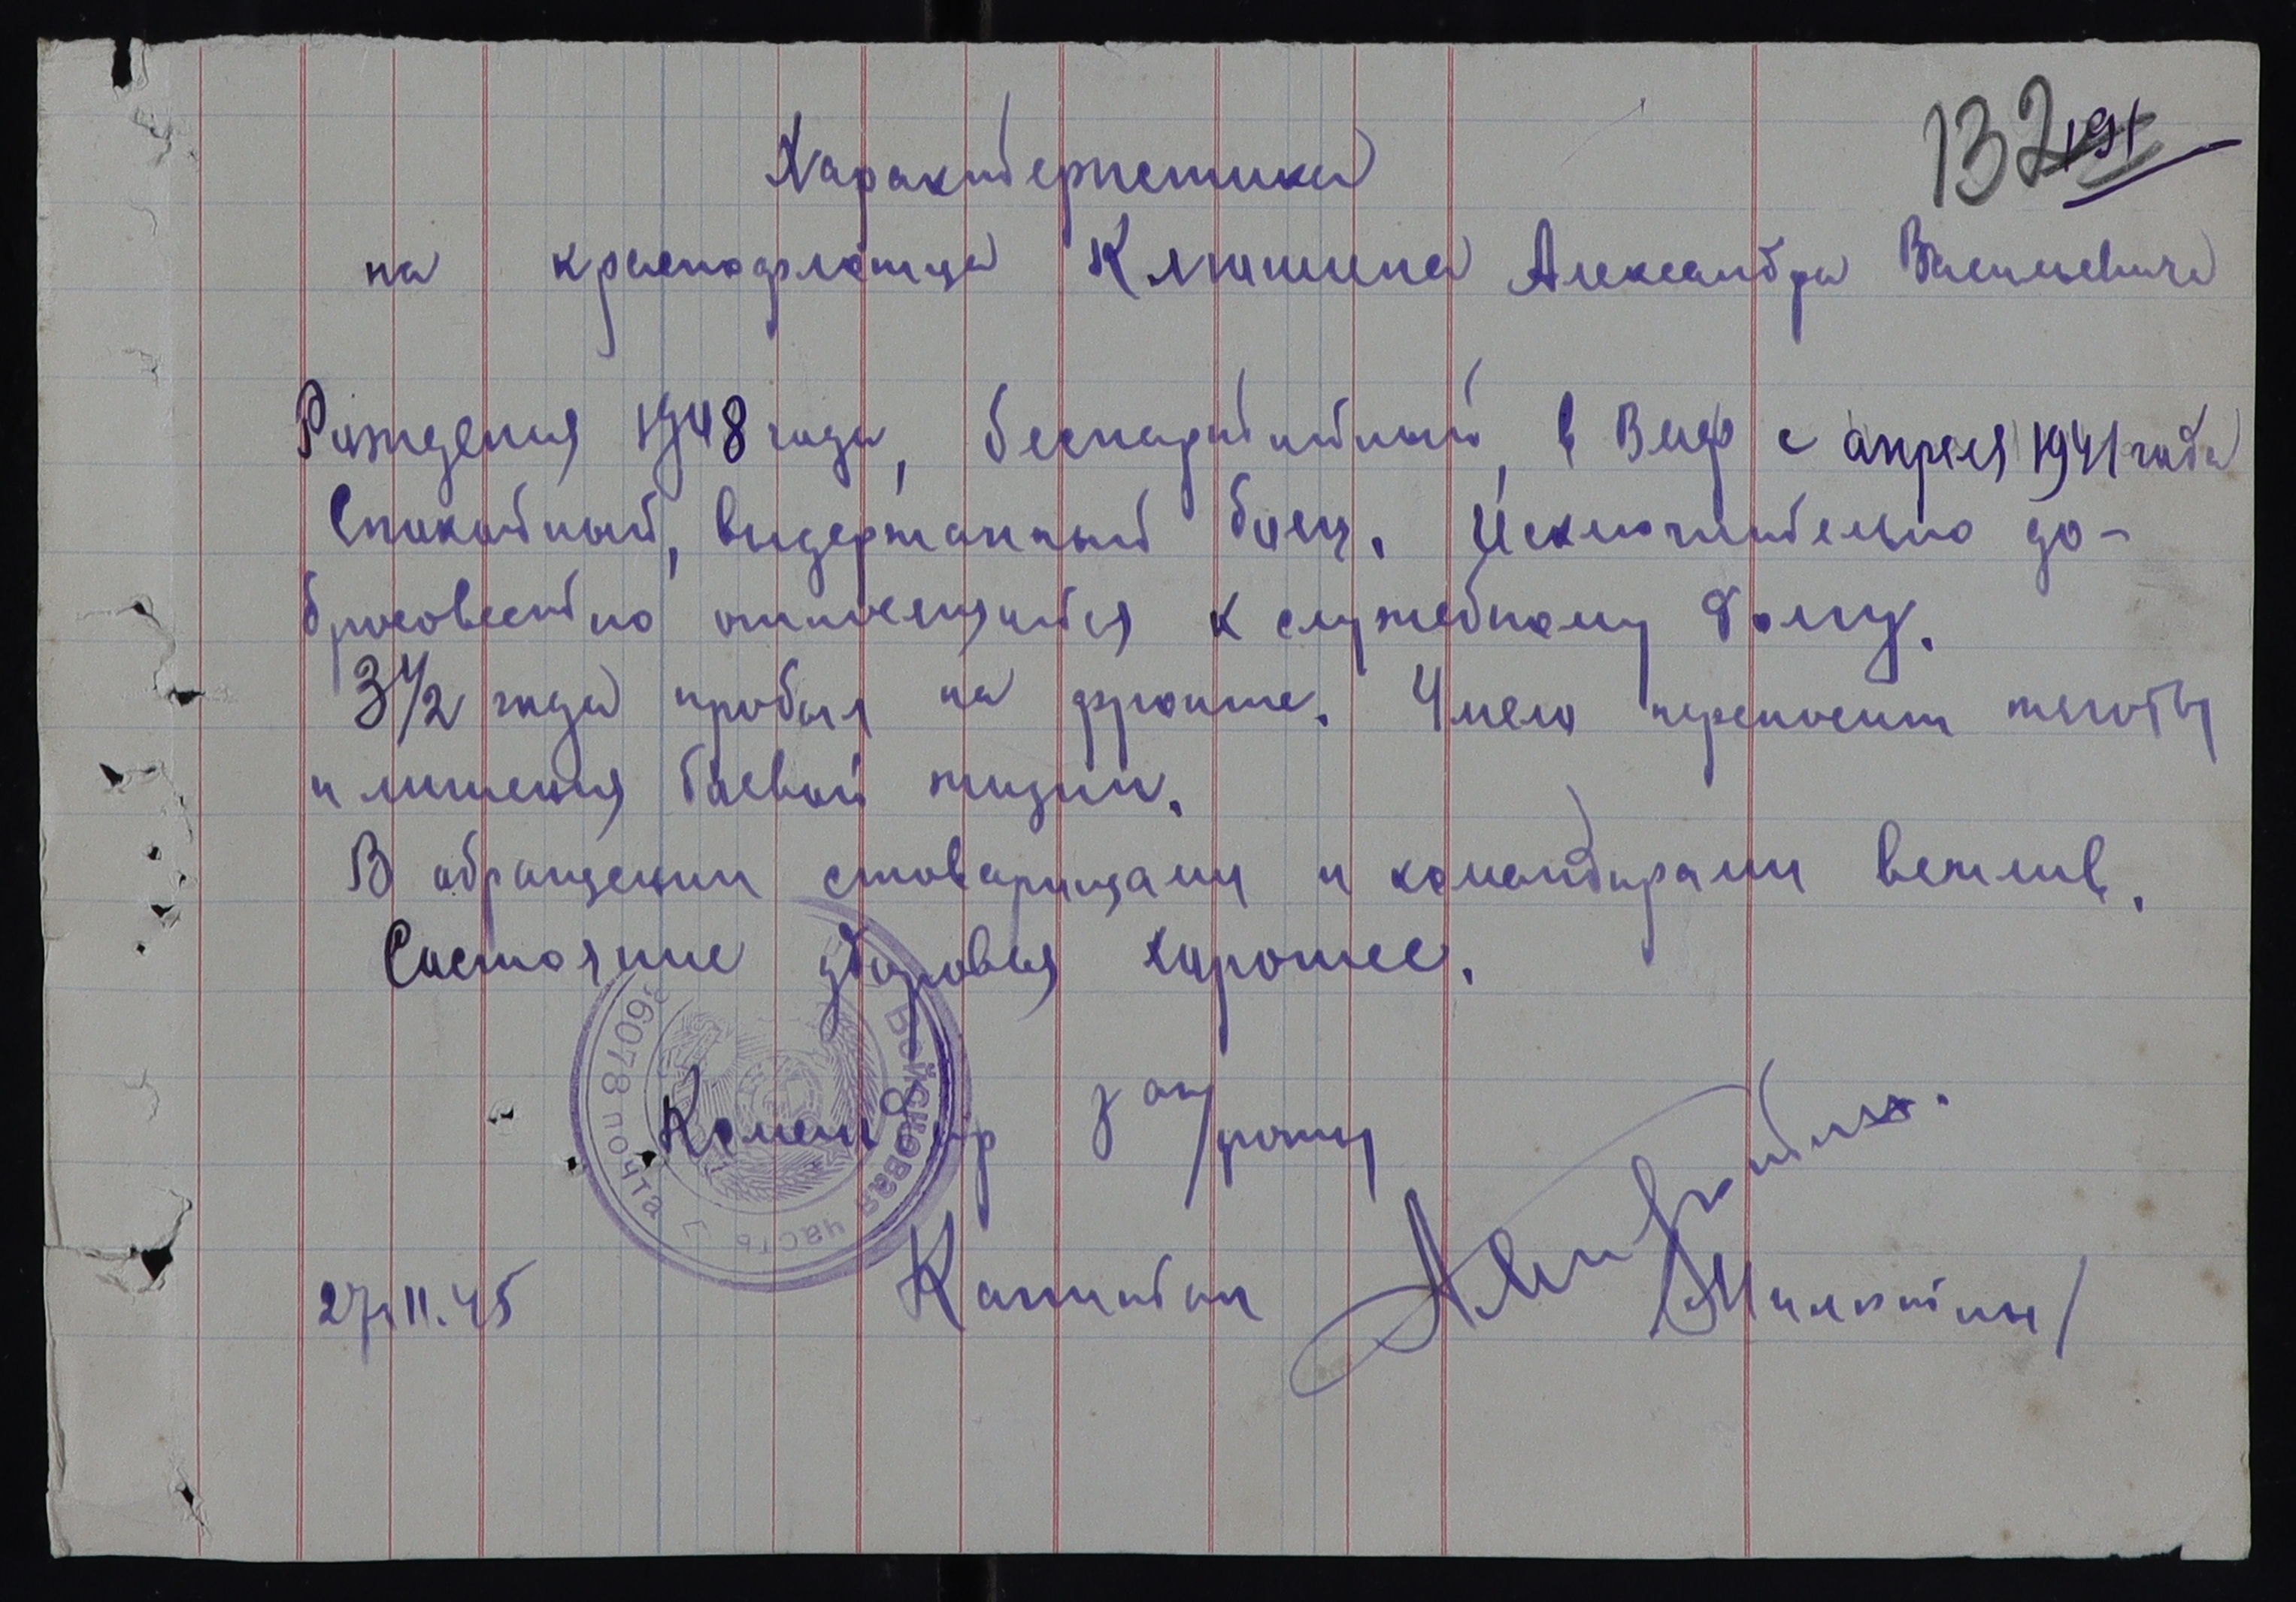 132 191
Характеристика
на краснофлотца Клюшина Александра Васильевича
Рождения 1918 года, беспартийный, в ВМФ с апреля 1941 года
Спокойный, выдержанный боец. Исключительно до-
бросовестно относящийся к служебному долгу.
3 1/2 года пробыл на фронте. Умело переносит тяготы
и лишения боевой жизни.
В обращении с товарищами и командирами вежлив.
Состояние здоровья хорошее.
Командир зап/роты
Капитан /Милютин/
27.11.45
Войсковая часть
36078 почта